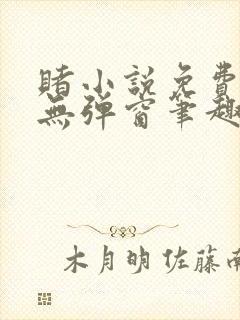 賭小説免費
無彈窗筆趣
木月明佐藤南